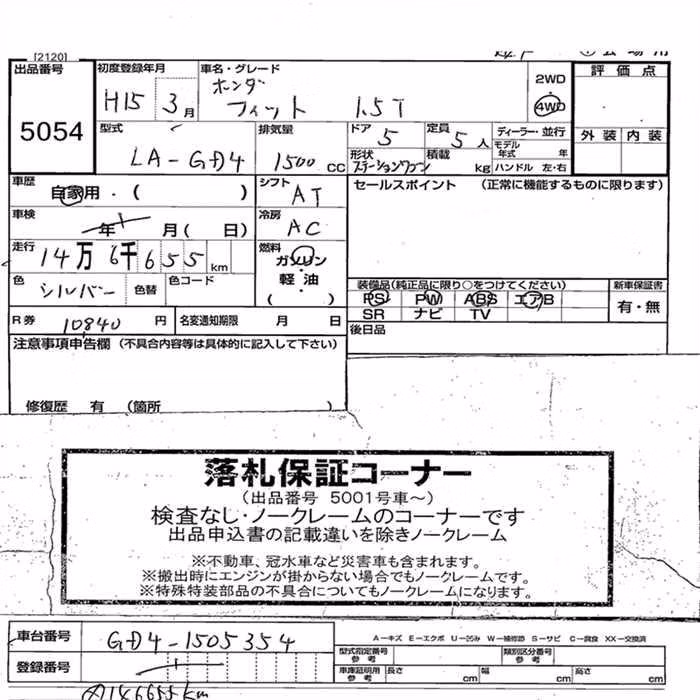 [2120]
出品番号 初度登録年月 車名・グレード 2WD 評価点
5054 H15 3月 ホンダ フィット 1.5T 4WD
外装 内装
型式 排気量 ドア 定員 ディーラー・並行
LA-GD4 1500 CC 5 5人 モデル年式 年
形状 ステーションワゴン 積載 kg ハンドル 左・右
車歴 自家用・( ) シフト AT セールスポイント (正常に機能するものに限ります)
車検 年 月( 日) 冷房 AC
走行 14万6千655km 燃料 ガソリン・軽油 ( )
色 シルバー 色替 色コード
装備品(純正品に限り○をつけてください) 新車保証書
PS PW ABS エアB 有・無
SR ナビ TV
R券 10840円 名変通知期限 月 日 後日品
注意事項申告欄 (不具合内容等は具体的に記入して下さい)
修復歴 有 (箇所 )
落札保証コーナー
(出品番号 5001号車~)
検査なし・ノークレームのコーナーです
出品申込書の記載違いを除きノークレーム
※不動車、冠水車など災害車も含まれます。
※搬出時にエンジンが掛からない場合でもノークレームです。
※特殊特装部品の不具合についてもノークレームになります。
車台番号 GD4-1505354 A-キズ E-エクボ U-凹み W-補修跡 S-サビ C-腐食 XX-交換済
登録番号 型式指定番号 参考 類別区分番号 参考
車庫証明用 参考 長さ cm 幅 cm 高さ cm
146655km